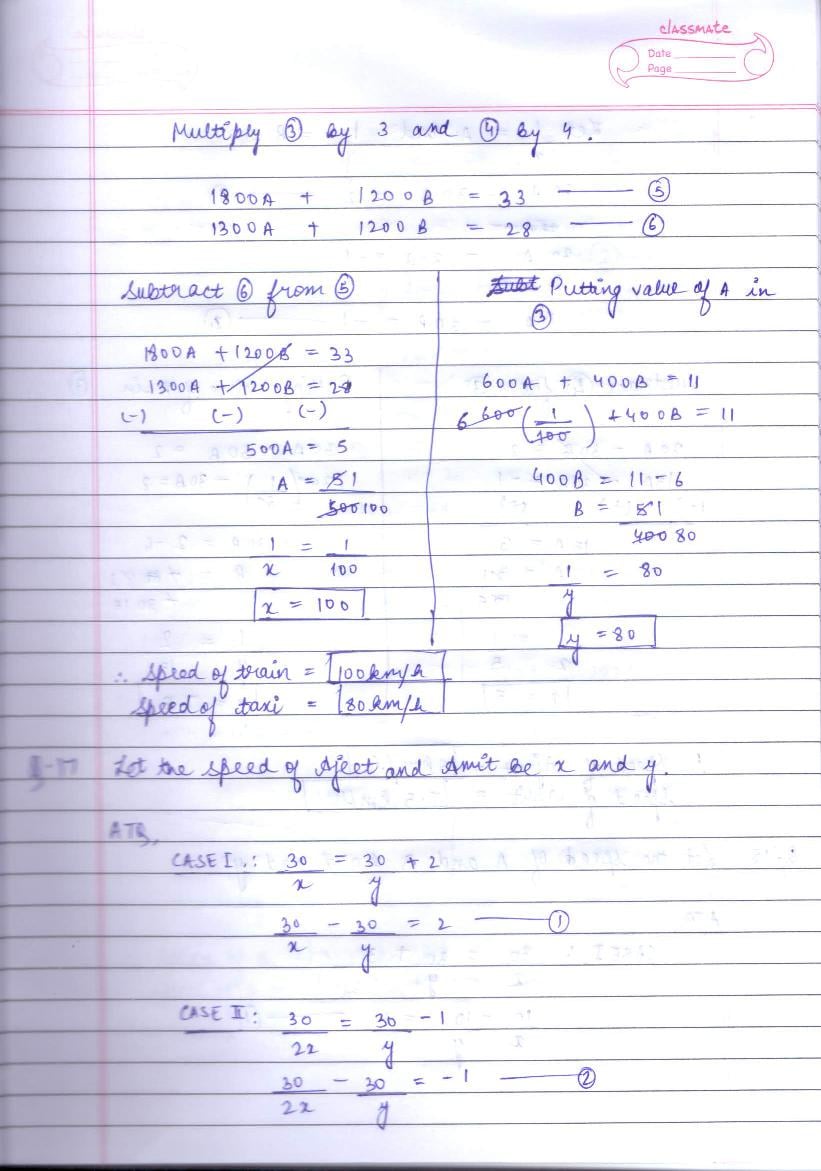 classmate
Date
Page
Multiply ③ by 3 and ④ by 4.
1800A + 1200B = 33 —— ⑤
1300A + 1200B = 28 —— ⑥
Subtract ⑥ from ⑤
1800A + 1200B = 33
1300A + 1200B = 28
(-) (-) (-)
500A = 5
A = 5 1
500 100
1/x = 1/100
x = 100
Putting value of A in
③
600A + 400B = 11
6 600 (1/100) + 400B = 11
400B = 11-6
B = 5 1
400 80
1/y = 80
y = 80
∴ Speed of train = 100km/h
Speed of taxi = 80km/h
Let the speed of Ajeet and Amit be x and y.
ATQ,
CASE I.: 30/x = 30/y + 2
30/x - 30/y = 2 —— ①
CASE II: 30/2x = 30/y - 1
30/2x - 30/y = -1 —— ②